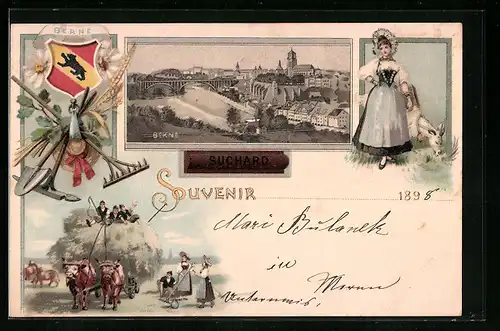 BERNE
BERNE
SUCHARD
SOUVENIR 1898
Mari Bulanek
in